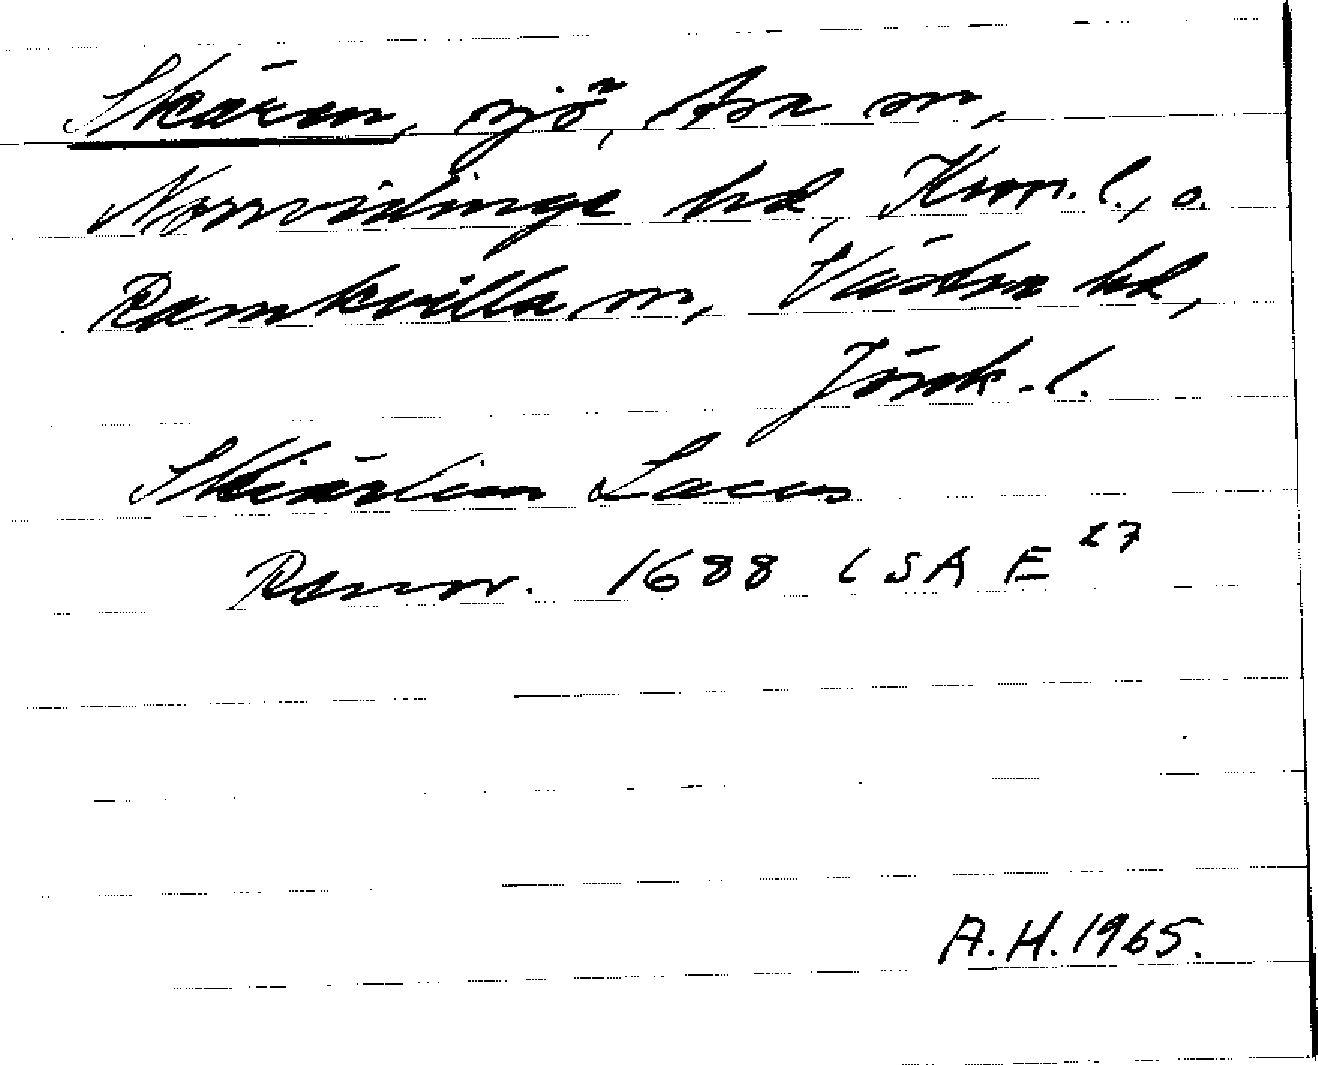 Skären, sjö, Asa sn,
Norrvidinge hd, Kron. l., o.
Ramkvilla sn, Västra hd,
Jönk. l.
Skiärlien Lacus
Rannv. 1688 LSA E 27
A.H. 1965.